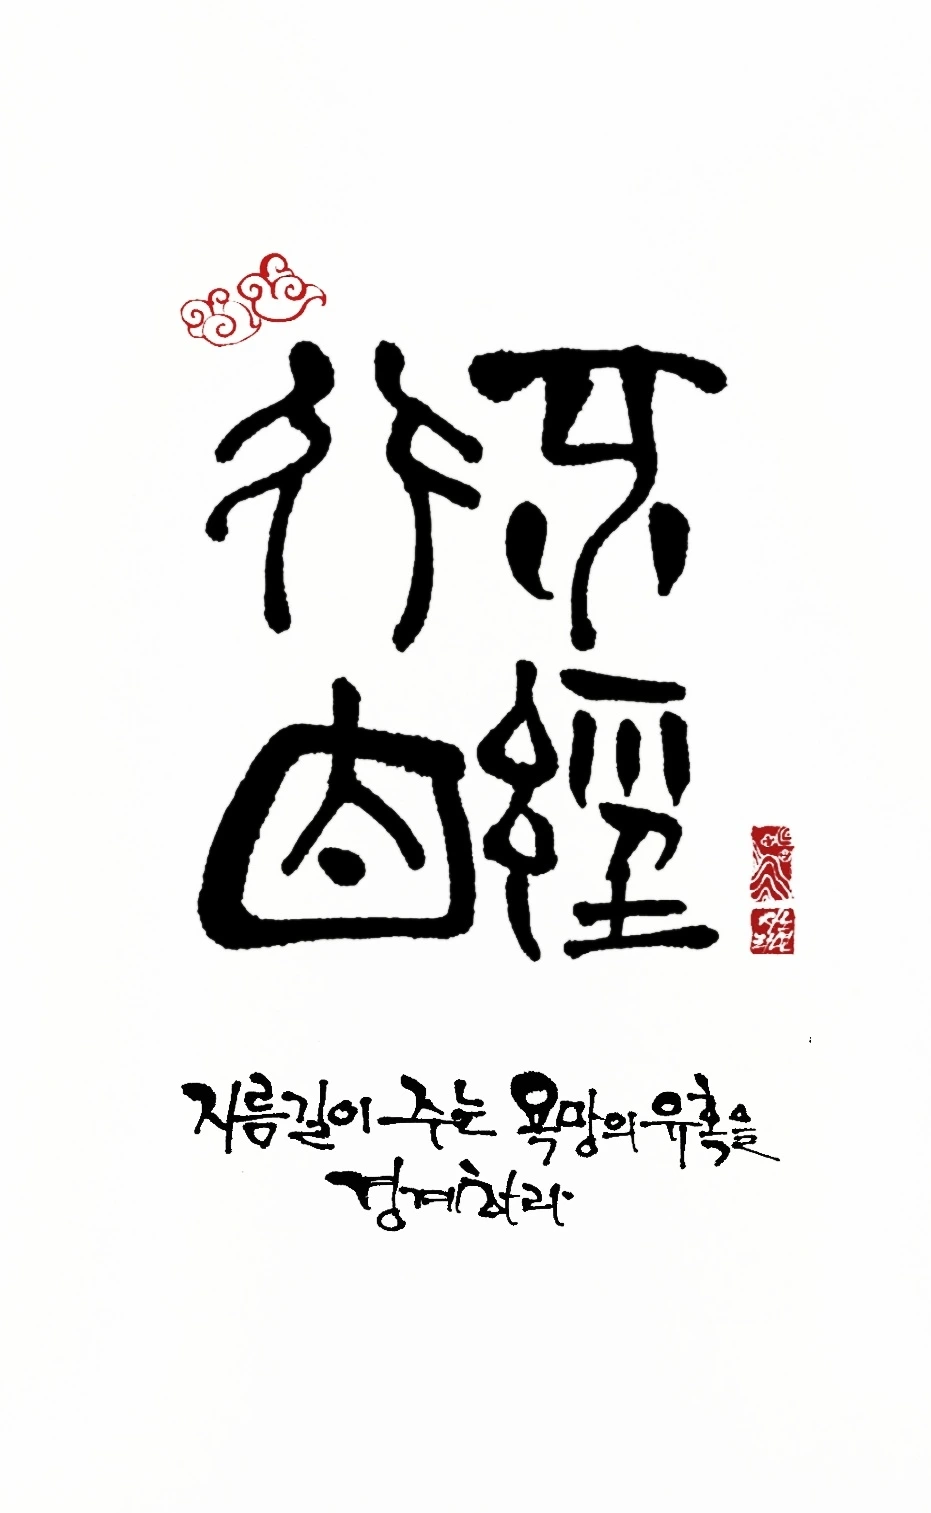 行不
由經
지름길이 주는 욕망의 유혹을
경계하라.